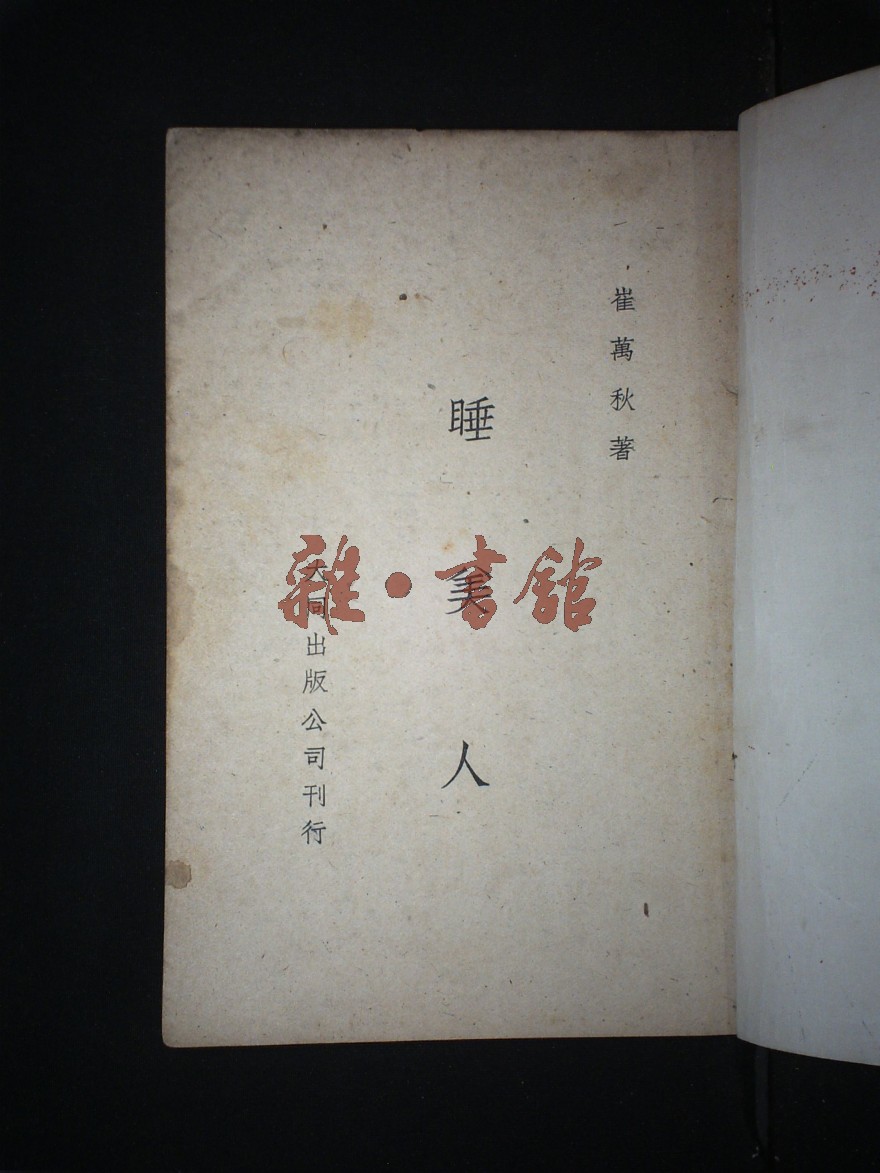 崔萬秋著
睡美人
大同出版公司刊行
雜·書館